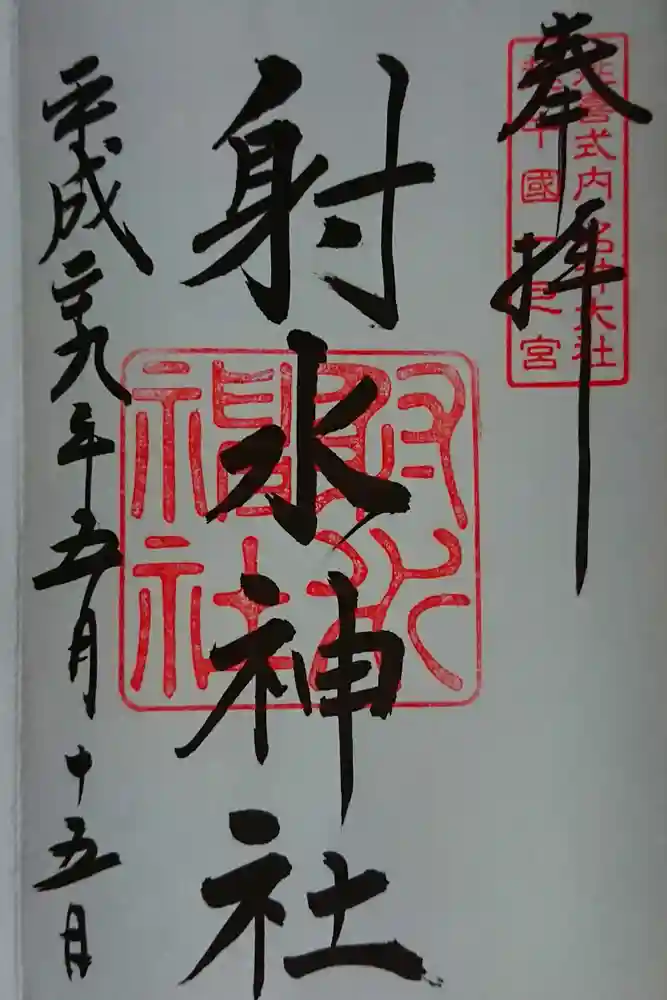 奉拝
延喜式内名神大社
越中國一宮
射水神社
射水神社
平成二十九年五月十五月